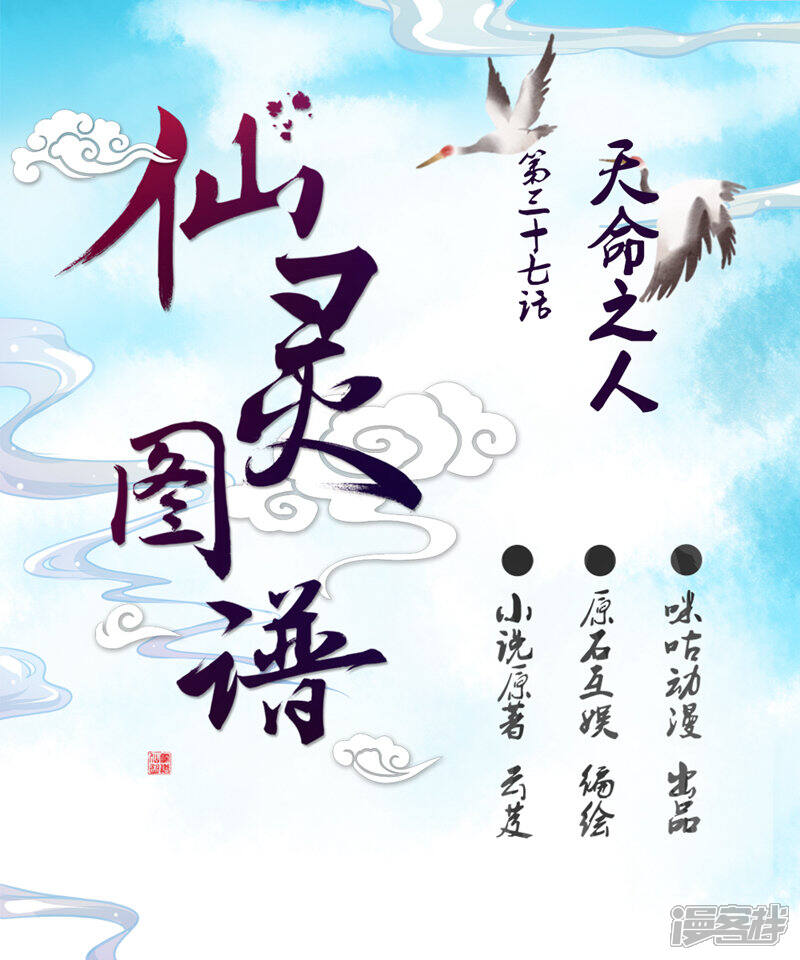 仙灵图谱
天命之人
第三十七话
咪咕动漫 出品
原石互娱 编绘
小说原著 云芨
漫客栈